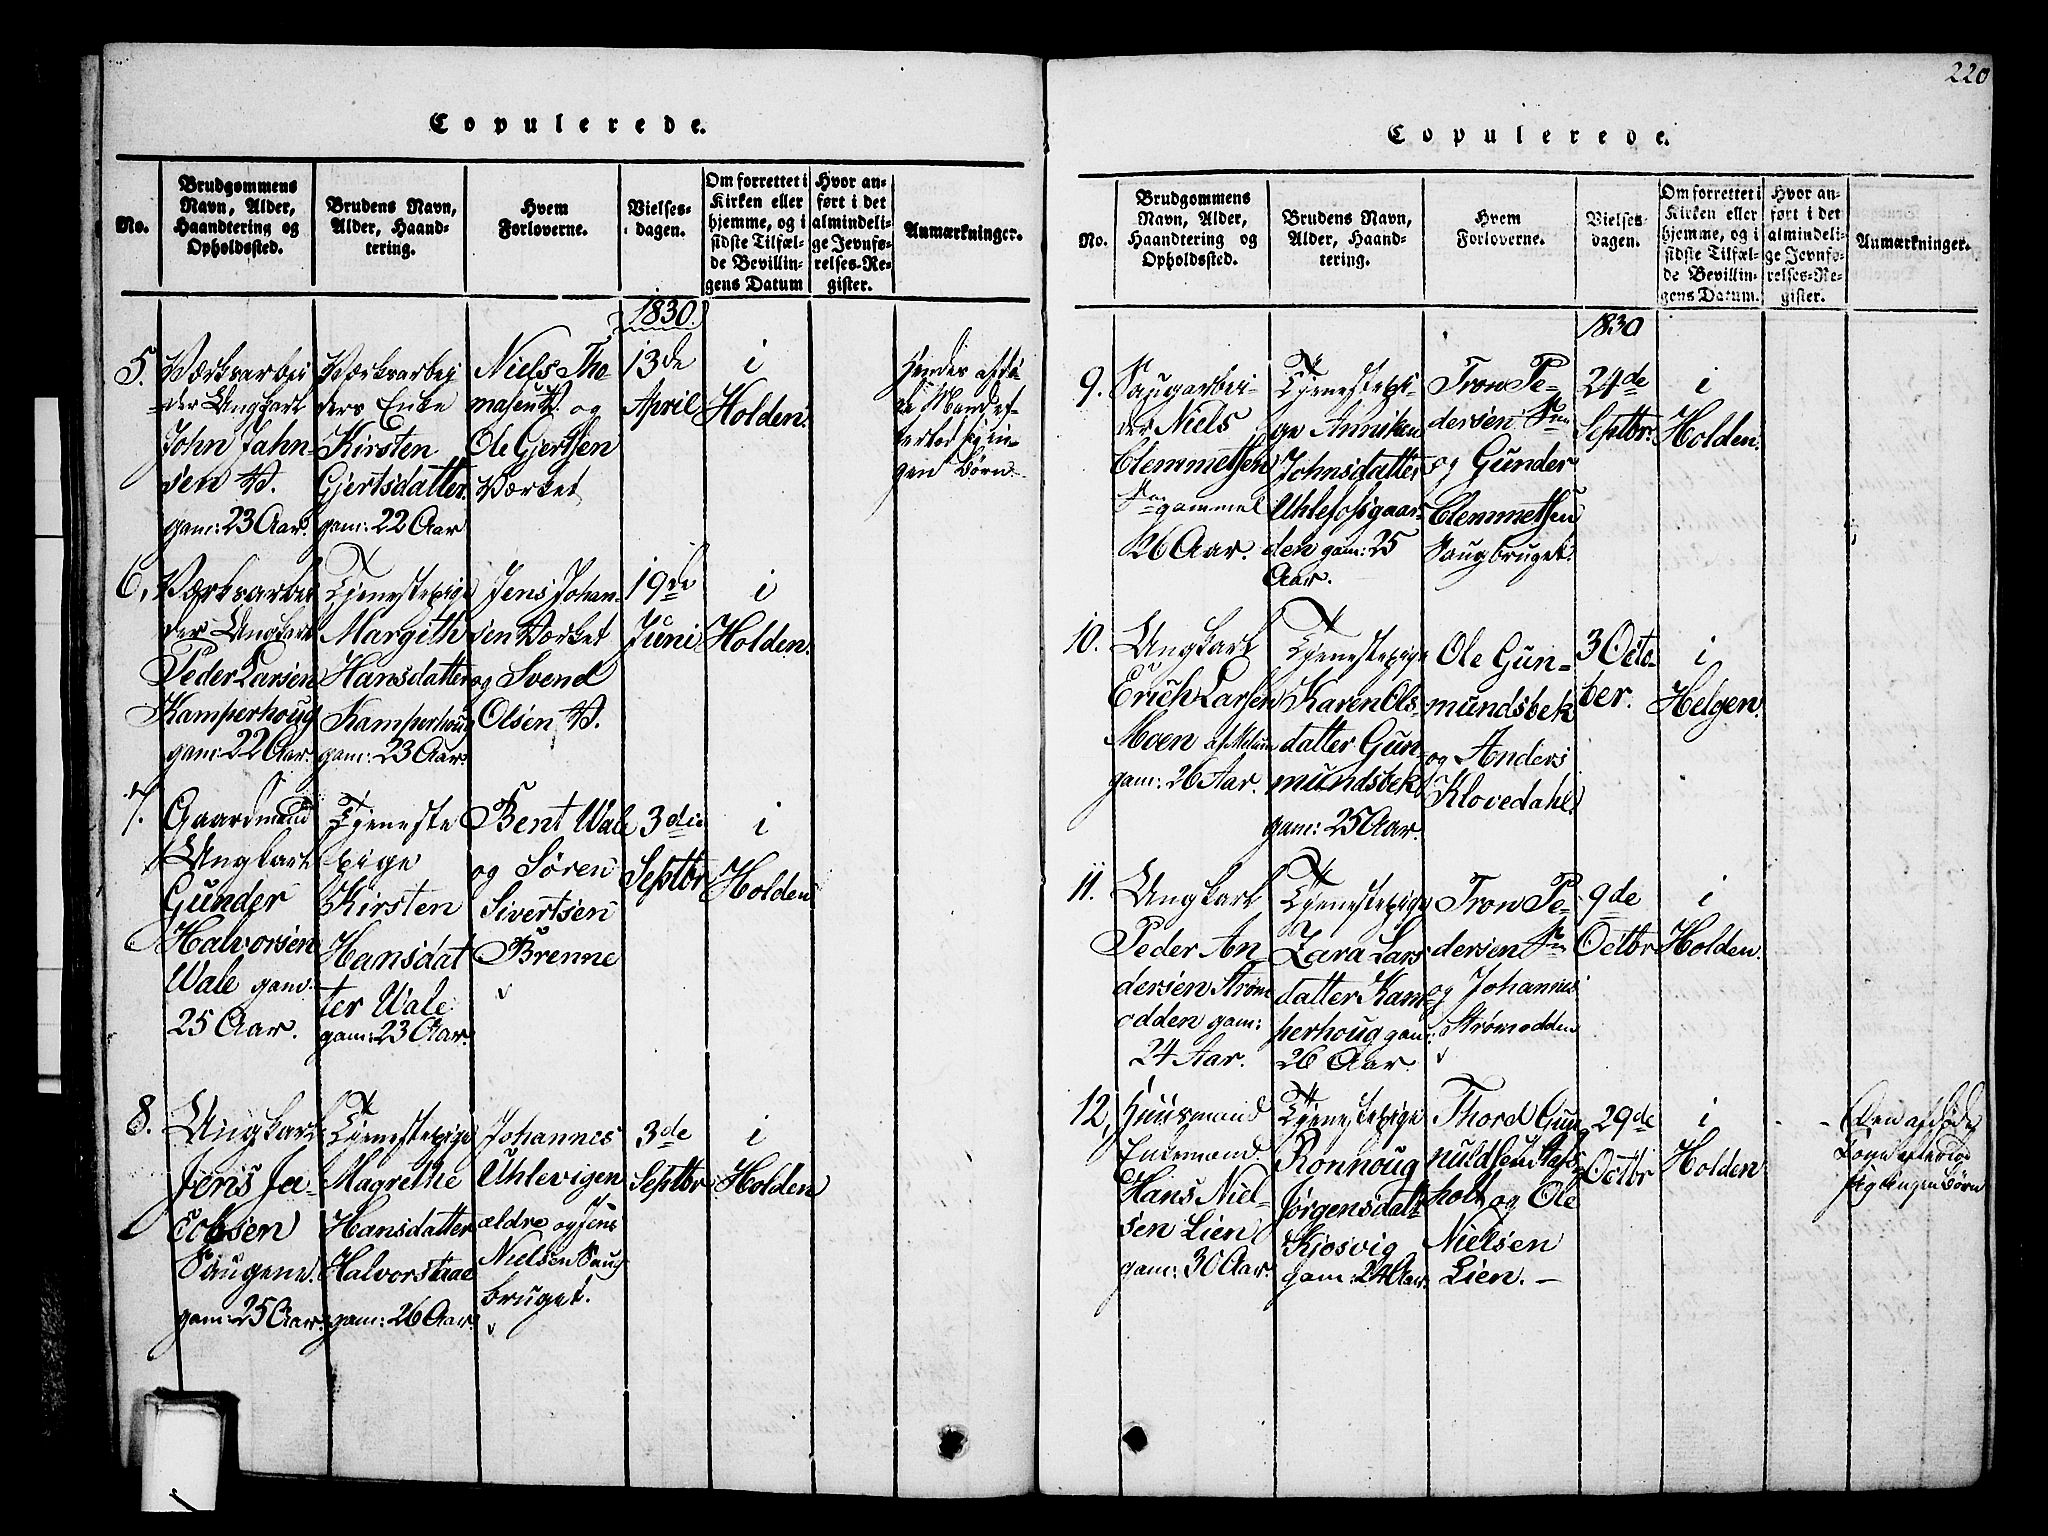 220
Copulerede.
No.
Brudgommens
Navn, Alder,
Haandtering og
Opholdssted.
Brudens Navn,
Alder, Haand-
tering.
Hvem
Forloverne.
Vielses-
dagen.
Om forrettet i
Kirken eller
hjemme, og i
sidste Tilfæl-
de Bevillin-
gens Datum
Hvor an-
ført i det
almindeli-
ge Jevnfø-
relses-Re-
gister.
Anmærkninger.
1830.
5.
Værksarbei
der Ungkarl
John Jahn-
sen V.
gam: 23 Aar.
Værksarbei
ders Enke
Kirsten
Gjertsdatter
gam: 22 Aar
Niels Tho-
masen V. og
Ole Gjertsen
Værket
13de
April
i
Holden.
Hendes afdø
de Mand ef-
terlod sig in-
gen Børn
6.
Værksarbei
der Ungkarl
Peder Larsen
Kamperhoug
gam: 22 Aar.
Tjenestepige
Margith
Hansdatter
Kamperhoug
gam: 23 Aar.
Jens Johan-
sen Værket
og Svend
Olsen V.
19de
Juni
i
Holden.
7.
Gaardmand
Ungkarl
Gunder
Halvorsen
Wale gam:
25 Aar.
Tjeneste
pige
Kirsten
Hansdat
ter Wale
gam: 23 Aar.
Bent Wale
og Søren
Sivertsen
Brenne
3die
Septbr
i
Holden
8.
Ungkarl
Jens Ja-
cobsen
Saugene.
gam: 25 Aar.
Tjenestepige
Magrethe
Hansdatter
Halvorstaae
gam: 26 Aar.
Johannes
Uhlevigen
ældre og Jens
Nielsen Saug
bruget.
3de
Septbr
i
Holden
Copulerede.
No.
Brudgommens
Navn, Alder,
Haandtering og
Opholdssted.
Brudens Navn,
Alder, Haand-
tering.
Hvem
Forloverne.
Vielses-
dagen.
Om forrettet i
Kirken eller
hjemme, og i
sidste Tilfæl-
de Bevillin-
gens Datum.
Hvor an-
ført i det
almindeli-
ge Jevnfø-
relses-Re-
gister.
Anmærkninger.
1830
9.
Saugarbei-
der Niels
Clemmetsen
gammel
26 Aar.
Tjenestepi-
ge Anniken
Johnsdatter
Uhlefossgaar-
den gam: 25
Aar.
Tron Pe-
dersen
og Gunder
Clemmetsen
Saugbruget.
24de
Septbr.
i
Holden
10.
Ungkarl
Erich Larsen
Moen af Melum
gam: 26 Aar.
Tjenestepige
Karen Ols-
datter Gun-
mundsbek
gam: 25 Aar.
Ole Gun-
mundsbek
og Anders
Klovedahl
3 Octo-
ber.
i
Helgen.
11.
Ungkarl
Peder An-
dersen Strøm
odden gam:
24 Aar.
Tjenestepige
Zara Lars
datter Kam-
perhoug gam:
26 Aar.
Tron Pe-
dersen
og Johannes
Strømodden
9de
Octbr
i
Holden.
12.
Huusmand
Enkemand
Hans Niel-
sen Lien
gam: 30 Aar.
Tjenestepige
Ronnoug
Jørgensdatt
Kjosvig
gam: 24 Aar.
Thord Gun
nuldsen
holt og Ole
Nielsen
Lien. –
29de
Octbr
i
Holden
Den afdøde
Kone efterlod
sig ingen Børn